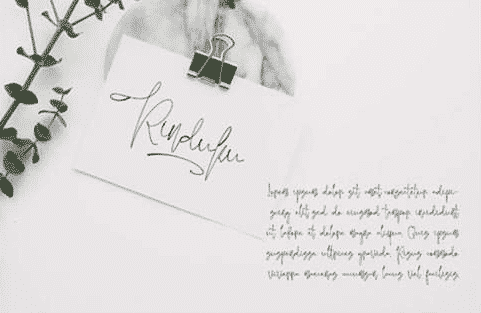 Lorem ipsum dolor sit amet consectetur adipi-
scing elit sed do eiusmod tempor incididunt
ut labore et dolore magna aliqua. Quis ipsum
suspendisse ultrices gravida. Risus commodo
viverra maecenas accumsan lacus vel facilisis.